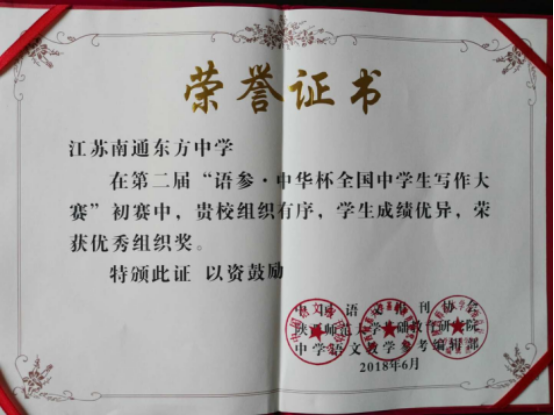 荣誉证书
江苏南通东方中学
在第二届“语参·中华杯全国中学生写作大
赛”初赛中,贵校组织有序,学生成绩优异,荣
获优秀组织奖。
特颁此证 以资鼓励
中国语文报刊协会
陕西师范大学基础教育研究院
中学语文教学参考编辑部
2018年6月